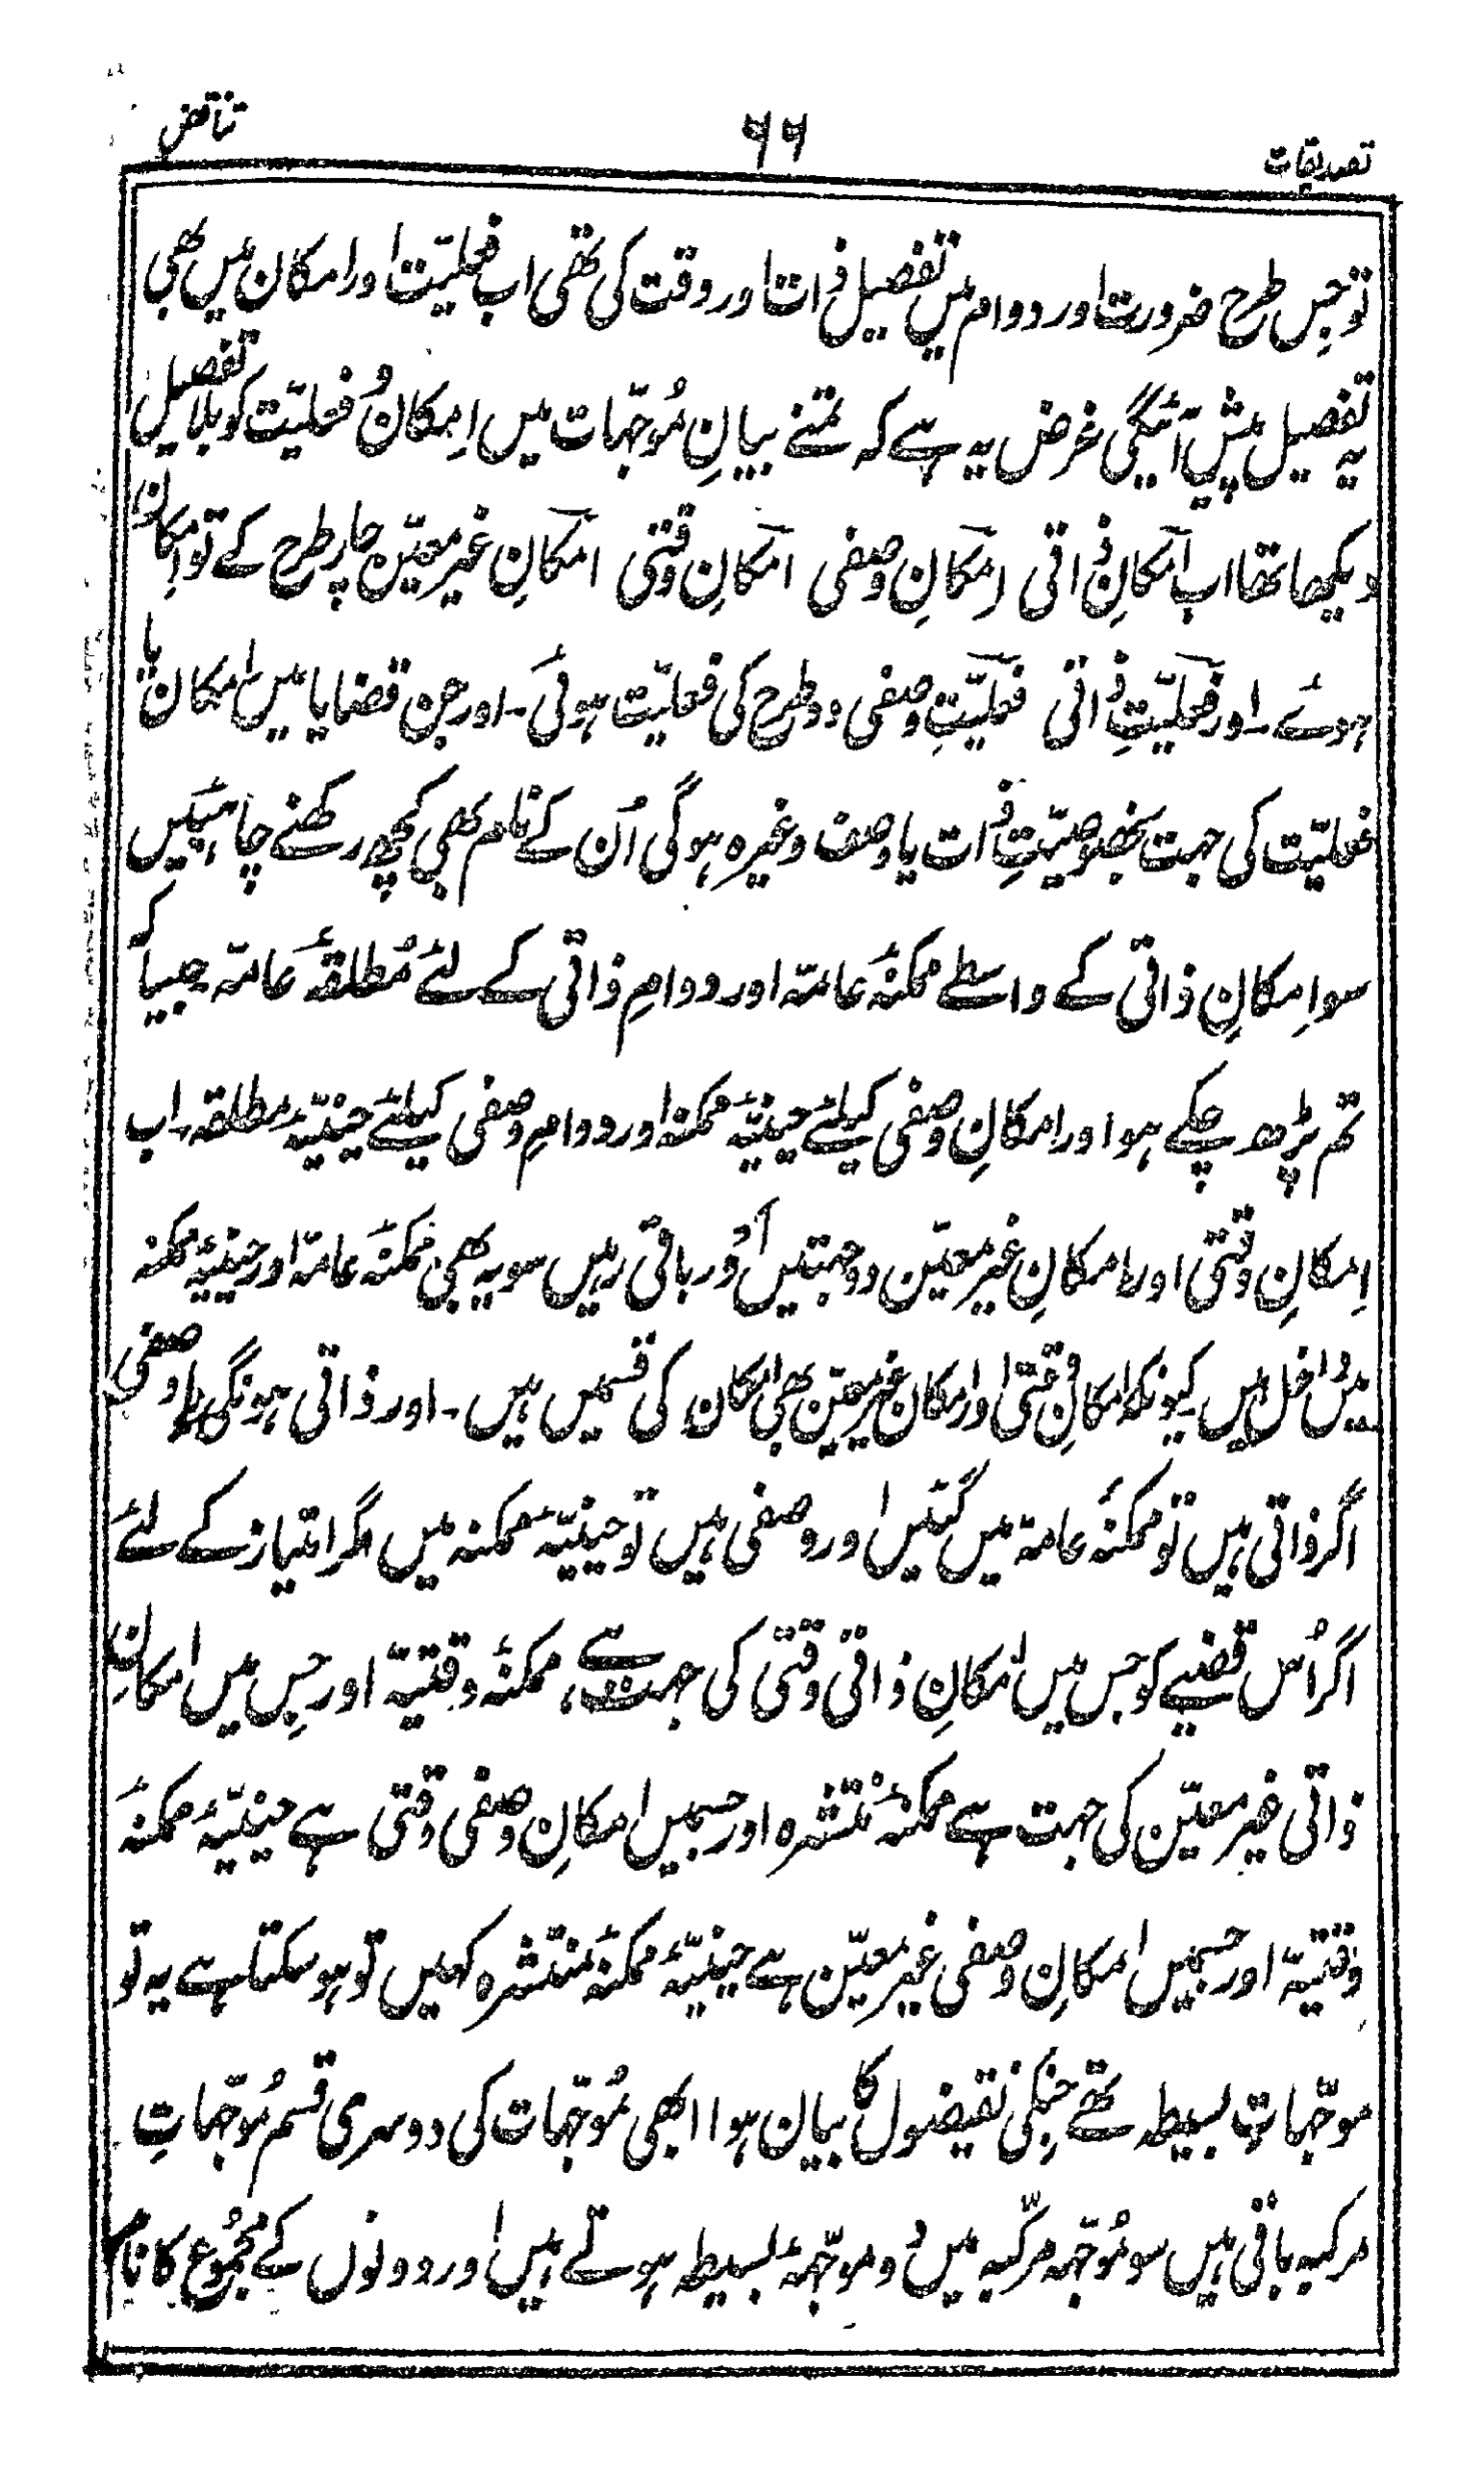 تصدیقات
۶۶
تناقض
تو جس طرح ضرورت اور دوام میں تفصیل ذات اور وقت کی تھی اب فعلیّت اور امکان میں بھی
یہ تفصیل پیش آئیگی غرض یہ ہے کہ تمنے بیانِ مُوجّہات میں اِمکان و فعلیّت کو بلا تفصیل
دیکھا تھا اب امکانِ ذاتی امکانِ وصفی امکانِ وقتی امکانِ غیر معیّن چار طرح کے تو اِمکان
ہوئے۔ اور فعلیّتِ ذاتی فعلیّتِ وصفی دو طرح کی فعلیّت ہوئی۔ اور جن قضایا میں امکان یا
فعلیّت کی جہت بخصوصیّتِ ذات یا وصف وغیرہ ہوگی اُن کے نام بھی کچھ رکھنے چاہئیں
سو اِمکانِ ذاتی کے واسطے ممکنۂ عامّہ اور دوامِ ذاتی کے لئے مُطلقۂ عامّہ جیسا کہ
تم پڑھ چکے ہو اور امکانِ وصفی کیلئے حینیّۂ ممکنہ اور دوامِ وصفی کیلئے حینیّۂ مطلقہ۔ اب
اِمکانِ وقتی اور امکانِ غیر معیّن دو جہتیں اَور باقی رہیں سو یہ بھی ممکنۂ عامّہ اور حینیّۂ ممکنہ
میں داخل ہیں کیونکہ امکانِ وقتی اور امکان غیر معیّن بھی امکان کی قسمیں ہیں۔ اور ذاتی ہونگی یا وصفی
اگر ذاتی ہیں تو ممکنۂ عامّہ میں گئیں اور وصفی ہیں تو حینیّۂ ممکنہ میں مگر امتیاز کے لئے
اگر اُس قضیے کو جس میں امکانِ ذاتی وقتی کی جہت ہے، ممکنۂ وقتیّہ اور جِس میں امکانِ
ذاتی غیر معیّن کی جہت ہے ممکنۂ منتشرہ اور جسمیں امکانِ وصفی وقتی ہے حینیّۂ ممکنۂ
وقتیّہ اور جسمیں امکانِ وصفی غیر معیّن ہے حینیّۂ ممکنۂ منتشرہ کہیں تو ہو سکتا ہے یہ تو
موجّہاتِ بسیطہ تھے جنکی نقیضوں کا بیان ہوا ابھی مُوجّہات کی دوسری قسم مُوجّہاتِ
مرکبہ باقی ہیں سو مُوجّہہ مرکّبہ میں دو موجّہۂ بسیطہ ہوتے ہیں اور دونوں کے مجمُوع کا نام